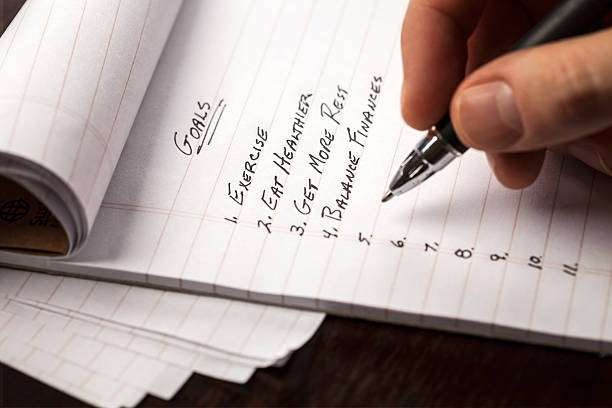 Goals
1. Exercise
2. Eat Healthier
3. Get More Rest
4. Balance Finances
5.
6.
7.
8.
9.
10.
11.